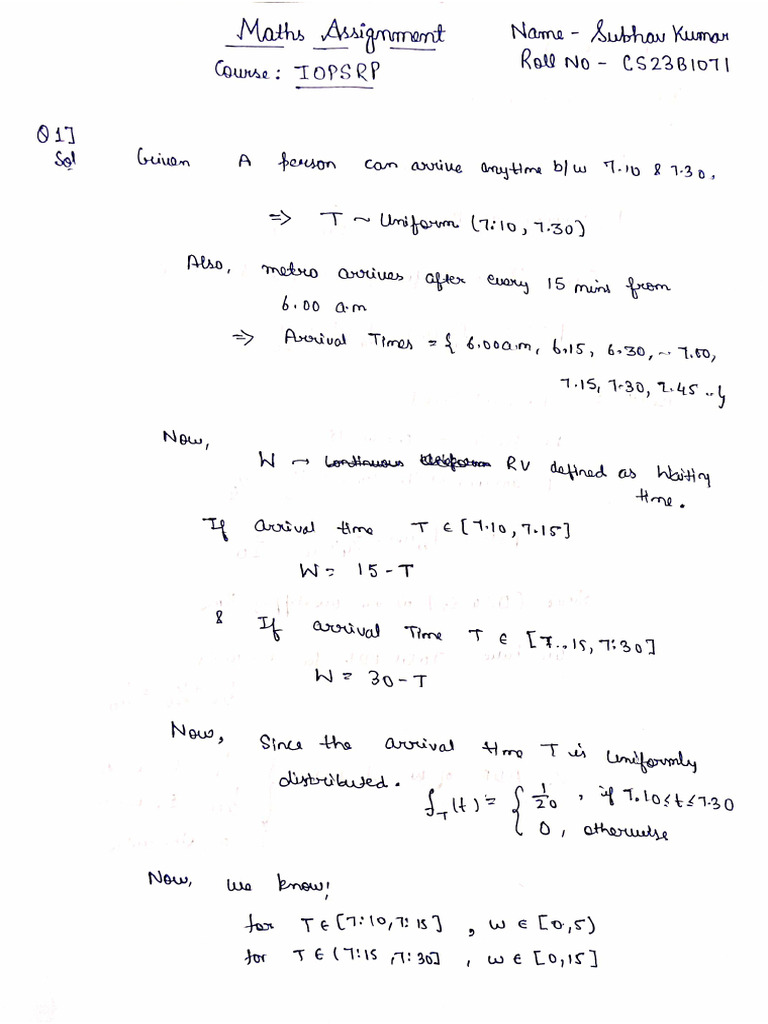 Maths Assignment
Name - Subhav Kumar
Course: IOPSRP
Roll No - CS23B1071
Q1]
Sol Given A person can arrive anytime b/w 7.10 & 7.30,
=> T ~ Uniform (7:10, 7.30)
Also, metro arrives after every 15 mins from
6.00 a.m
=> Arrival Times = { 6.00a.m, 6.15, 6.30, .. 7.00,
7.15, 7.30, 7.45 .. }
Now,
W → continuous RV defined as Waiting
time.
If arrival time T ∈ [7.10, 7.15]
W = 15 - T
& If arrival Time T ∈ [7..15, 7:30]
W = 30 - T
Now, Since the arrival time T is Uniformly
distributed.
f_T(t) = { 1/20 , if 7.10 ≤ t ≤ 7.30
0, otherwise
Now, we know!
for T ∈ [7:10, 7:15] , w ∈ [0,5)
for T ∈ (7:15, 7:30] , w ∈ [0,15]